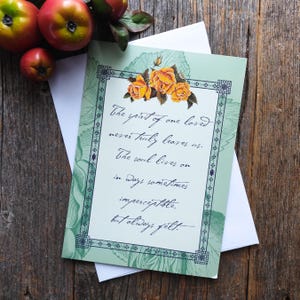 The spirit of one loved
never truly leaves us.
The soul lives on
in ways sometimes
imperceptible,
but always felt.